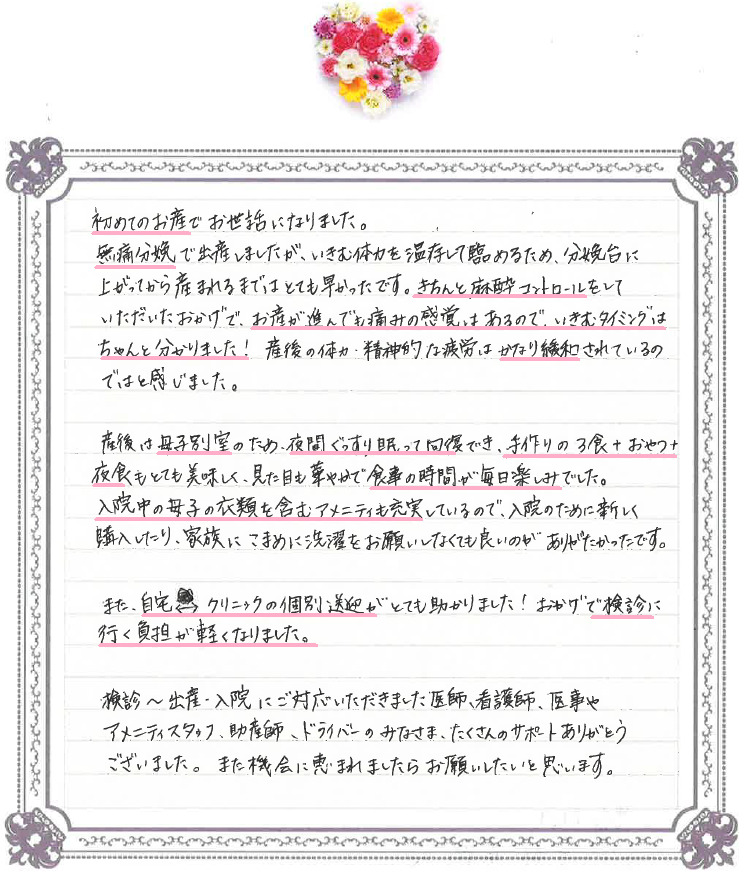 初めてのお産でお世話になりました。
無痛分娩で出産しましたが、いきむ体力を温存して臨めるため、分娩台に
上がってから産まれるまではとても早かったです。きちんと麻酔コントロールをして
いただいたおかげで、お産が進んでも痛みの感覚はあるので、いきむタイミングは
ちゃんと分かりました！ 産後の体力・精神的な疲労はかなり緩和されているの
ではと感じました。
産後は母子別室のため、夜間ぐっすり眠って回復でき、手作りの3食+おやつ+
夜食もとても美味しく、見た目も華やかで食事の時間が毎日楽しみでした。
入院中の母子の衣類を含むアメニティも充実しているので、入院のために新しく
購入したり、家族にこまめに洗濯をお願いしなくても良いのがありがたかったです。
また、自宅 クリニックの個別送迎がとても助かりました！おかげで検診に
行く負担が軽くなりました。
検診〜出産・入院にご対応いただきました医師、看護師、医事や
アメニティスタッフ、助産師、ドライバーのみなさま、たくさんのサポートありがとう
ございました。また機会に恵まれましたらお願いしたいと思います。